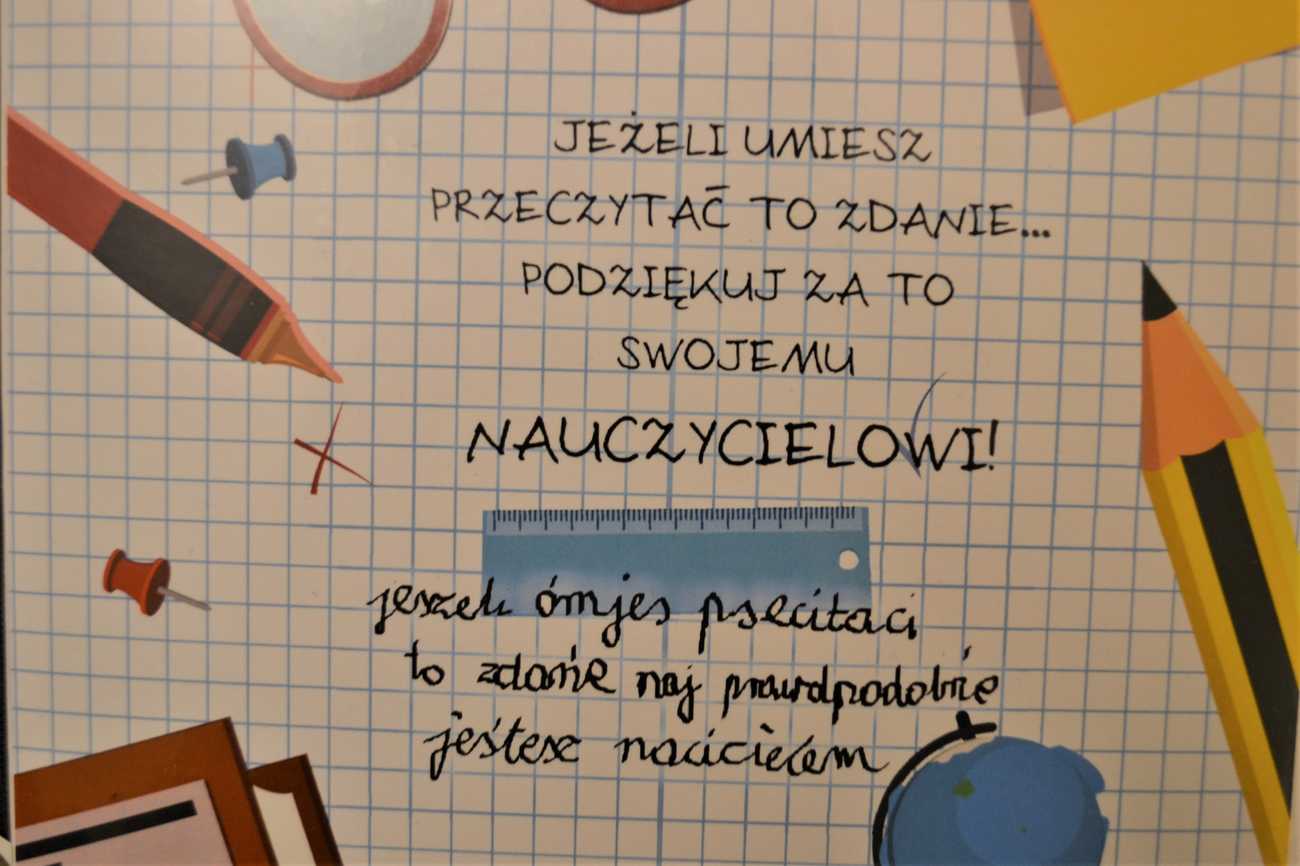 JEŻELI UMIESZ
PRZECZYTAĆ TO ZDANIE...
PODZIĘKUJ ZA TO
SWOJEMU
NAUCZYCIELOWI!
jeszeli ómjes psecitaci
to zdańe naj prawdpodobńe
jeśtesz nacicielem